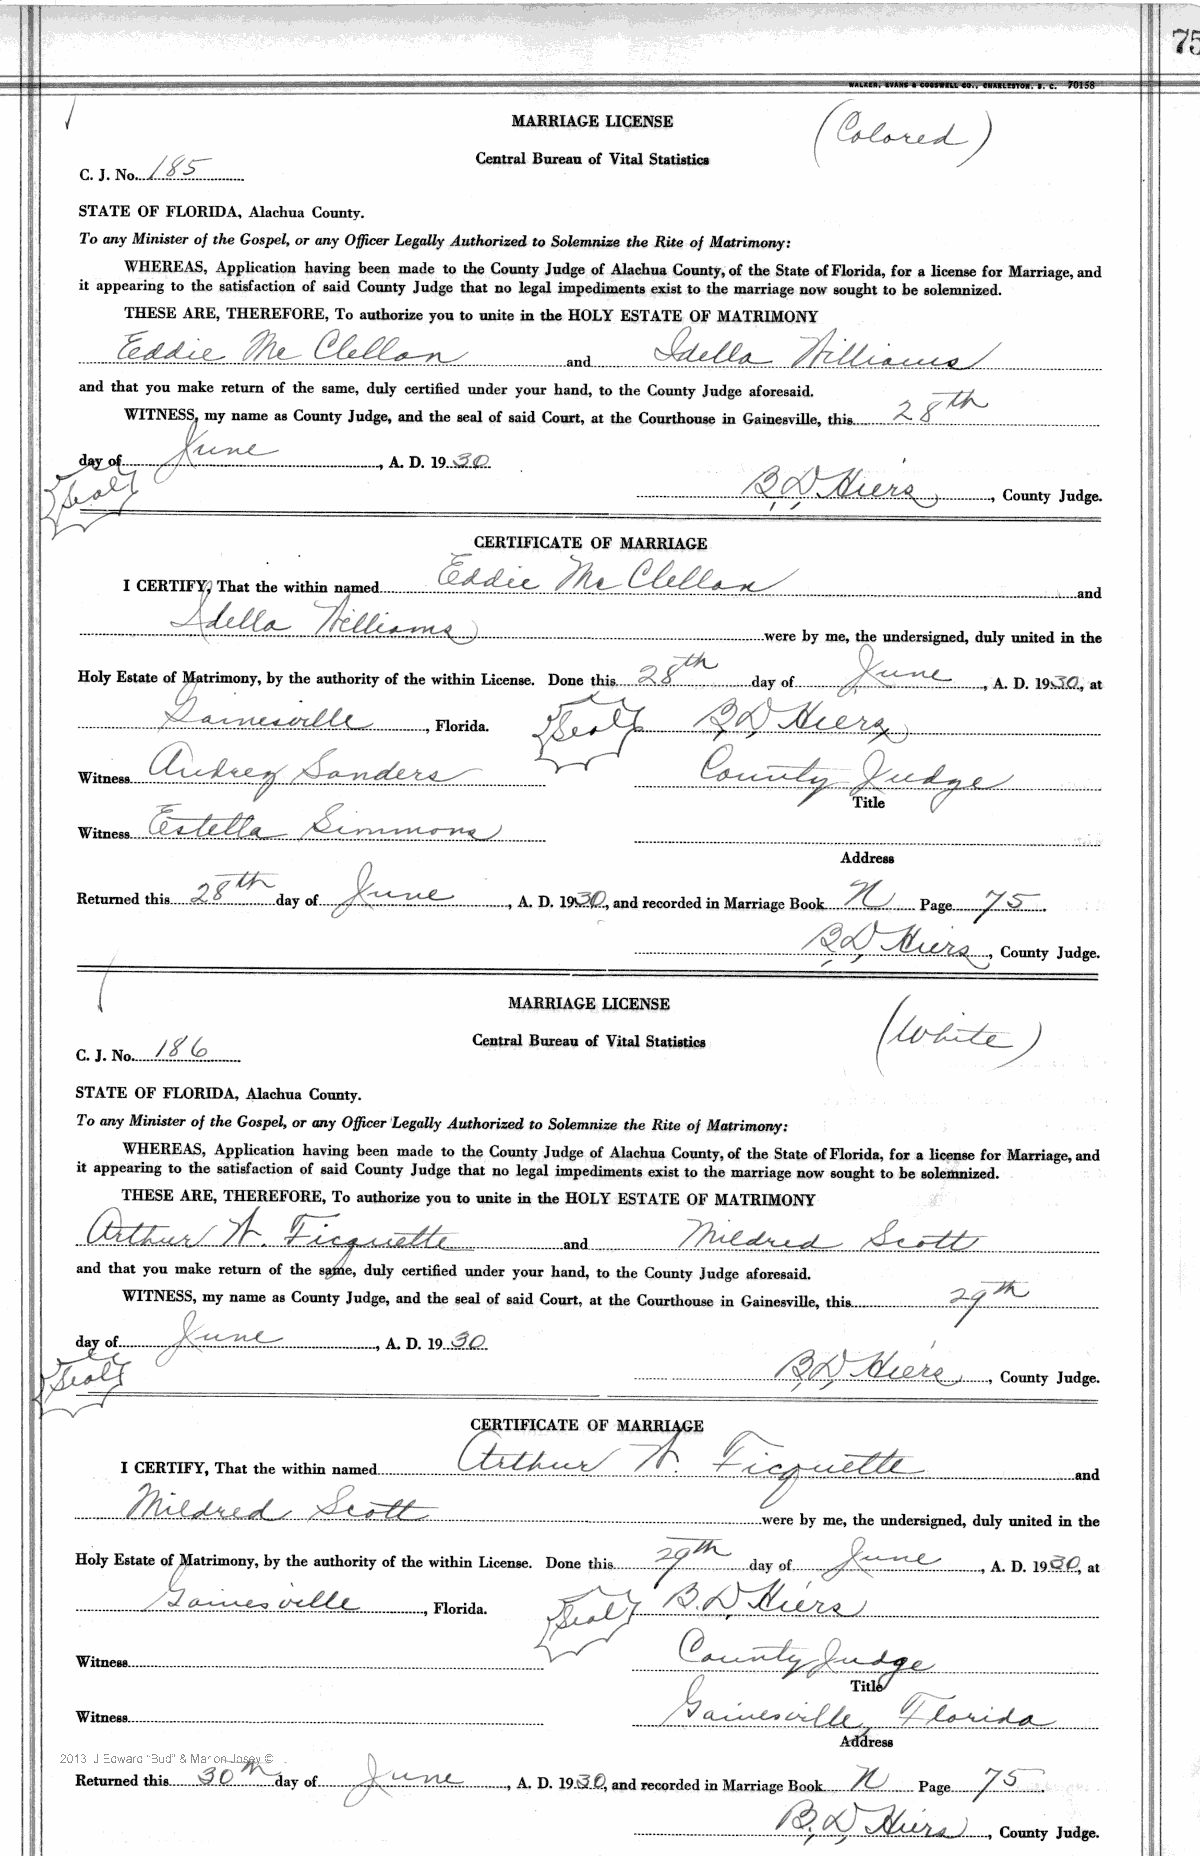 75
WALKER, EVANS & COGSWELL CO., CHARLESTON, S. C. 70158
MARRIAGE LICENSE
(Colored)
Central Bureau of Vital Statistics
C. J. No. 185
STATE OF FLORIDA, Alachua County.
To any Minister of the Gospel, or any Officer Legally Authorized to Solemnize the Rite of Matrimony:
WHEREAS, Application having been made to the County Judge of Alachua County, of the State of Florida, for a license for Marriage, and
it appearing to the satisfaction of said County Judge that no legal impediments exist to the marriage now sought to be solemnized.
THESE ARE, THEREFORE, To authorize you to unite in the HOLY ESTATE OF MATRIMONY
Eddie Mc Clellan and Idella Williams
and that you make return of the same, duly certified under your hand, to the County Judge aforesaid.
WITNESS, my name as County Judge, and the seal of said Court, at the Courthouse in Gainesville, this 28th
day of June, A. D. 1930
Seal
B, D, Hiers, County Judge.
CERTIFICATE OF MARRIAGE
I CERTIFY, That the within named Eddie Mc Clellan and
Idella Williams were by me, the undersigned, duly united in the
Holy Estate of Matrimony, by the authority of the within License. Done this 28th day of June, A. D. 1930, at
Gainesville, Florida. Seal B, D, Hiers
Witness Audrey Sanders County Judge
Title
Witness Estella Simmons
Address
Returned this 28th day of June, A. D. 1930, and recorded in Marriage Book N Page 75.
B, D, Hiers, County Judge.
MARRIAGE LICENSE
(White)
Central Bureau of Vital Statistics
C. J. No. 186
STATE OF FLORIDA, Alachua County.
To any Minister of the Gospel, or any Officer Legally Authorized to Solemnize the Rite of Matrimony:
WHEREAS, Application having been made to the County Judge of Alachua County, of the State of Florida, for a license for Marriage, and
it appearing to the satisfaction of said County Judge that no legal impediments exist to the marriage now sought to be solemnized.
THESE ARE, THEREFORE, To authorize you to unite in the HOLY ESTATE OF MATRIMONY
Arthur W. Ficquette and Mildred Scott
and that you make return of the same, duly certified under your hand, to the County Judge aforesaid.
WITNESS, my name as County Judge, and the seal of said Court, at the Courthouse in Gainesville, this 29th
day of June, A. D. 1930
Seal
B, D, Hiers, County Judge.
CERTIFICATE OF MARRIAGE
I CERTIFY, That the within named Arthur W. Ficquette and
Mildred Scott were by me, the undersigned, duly united in the
Holy Estate of Matrimony, by the authority of the within License. Done this 29th day of June, A. D. 1930, at
Gainesville, Florida. Seal B. D, Hiers
Witness County Judge
Title
Witness Gainesville, Florida
Address
2013 J Edward "Bud" & Marion Josey ©
Returned this 30th day of June, A. D. 1930, and recorded in Marriage Book N Page 75.
B, D, Hiers, County Judge.